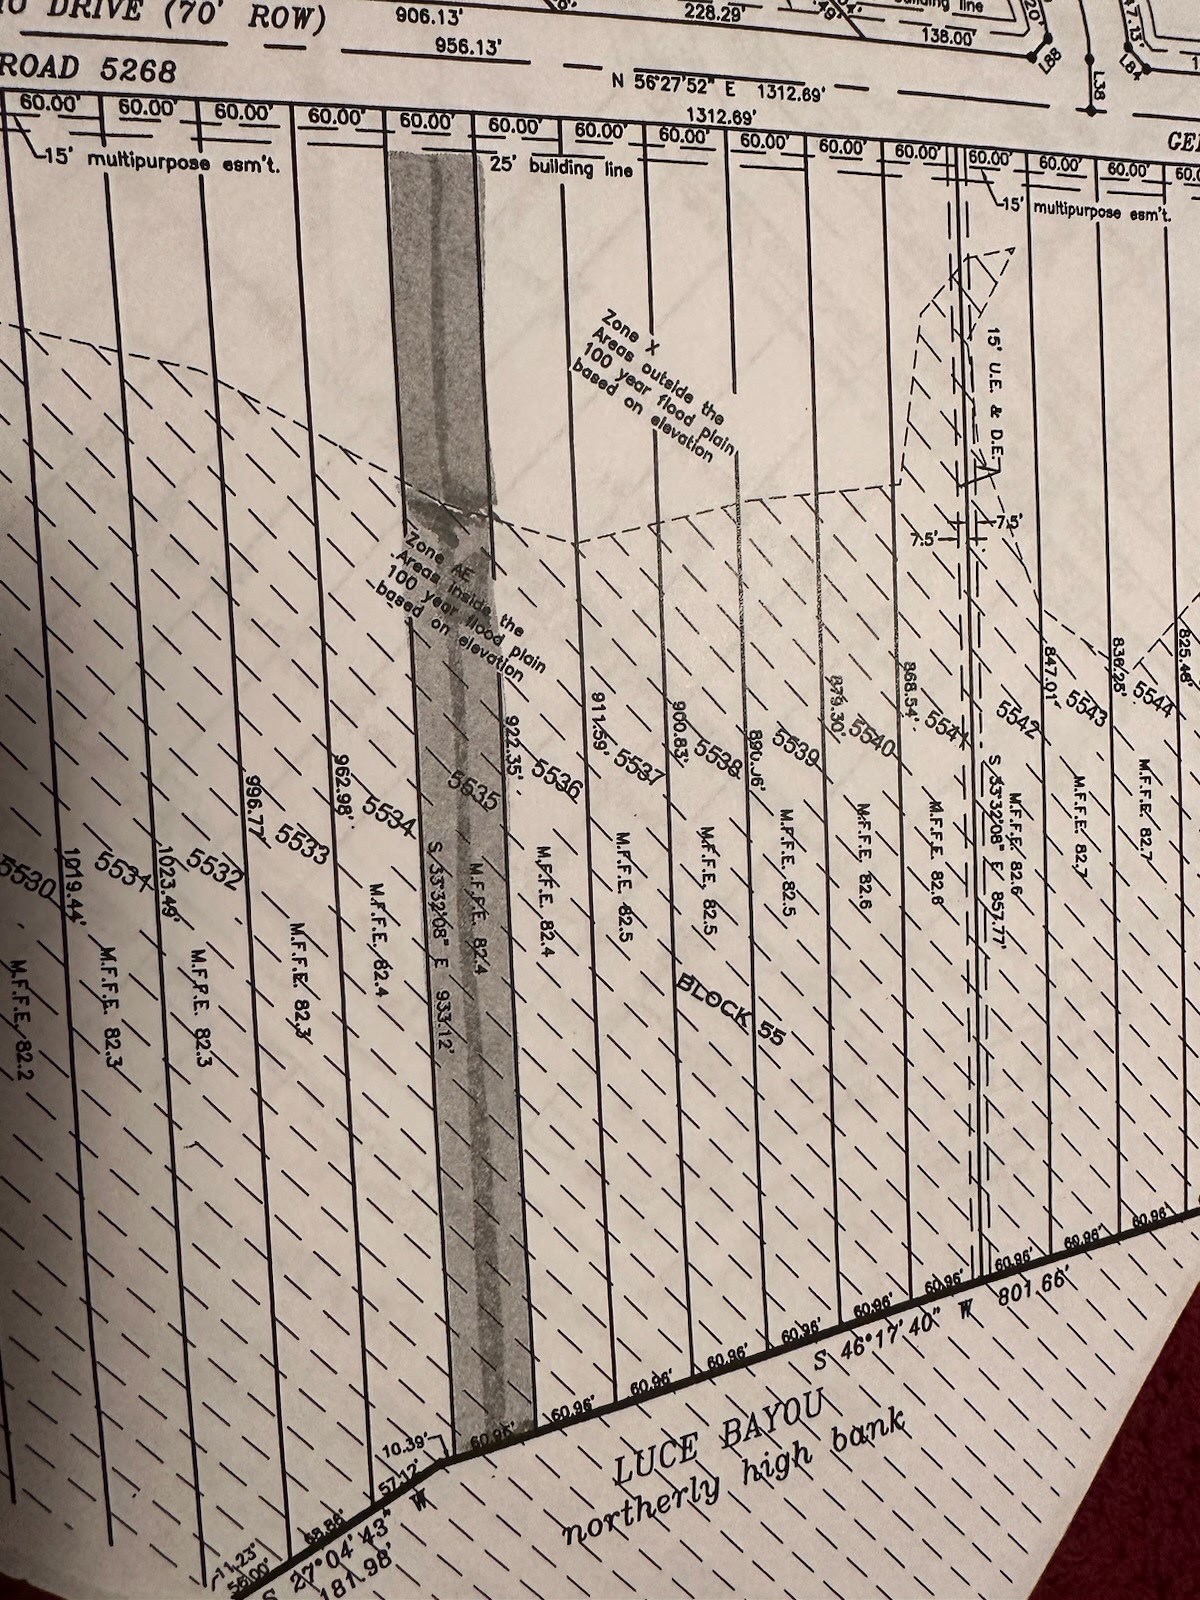 DRIVE (70' ROW)
906.13'
228.29'
building line
138.00'
L88
L84
L38
956.13'
ROAD 5268
N 56°27'52" E 1312.69'
1312.69'
60.00' 60.00' 60.00' 60.00' 60.00' 60.00' 60.00' 60.00' 60.00' 60.00' 60.00' 60.00' 60.00'
15' multipurpose esm't.
25' building line
15' multipurpose esm't.
Zone X
Areas outside the
100 year flood plain
based on elevation
15' U.E. & D.E.
7.5'
7.5'
Zone AE
Areas inside the
100 year flood plain
based on elevation
1019.44'
1023.49'
996.77'
962.98'
922.35'
911.59'
900.83'
890.06'
879.30'
868.54'
847.01'
836.25'
825.48'
5530
5531
5532
5533
5534
5535
5536
5537
5538
5539
5540
5541
5542
5543
5544
S 33°32'08" E 933.12'
S 33°32'08" E 857.77'
M.F.F.E. 82.2
M.F.F.E. 82.3
M.F.F.E. 82.3
M.F.F.E. 82.3
M.F.F.E. 82.4
M.F.F.E. 82.4
M.F.F.E. 82.4
M.F.F.E. 82.5
M.F.F.E. 82.5
M.F.F.E. 82.5
M.F.F.E. 82.6
M.F.F.E. 82.6
M.F.F.E. 82.6
M.F.F.E. 82.7
M.F.F.E. 82.7
BLOCK 55
11.23'
55.00'
68.86'
57.12'
10.39'
60.96' 60.96' 60.96' 60.96' 60.96' 60.96' 60.96' 60.96' 60.96' 60.96'
S 46°17'40" W 801.66'
S 27°04'43" W
181.98'
LUCE BAYOU
northerly high bank